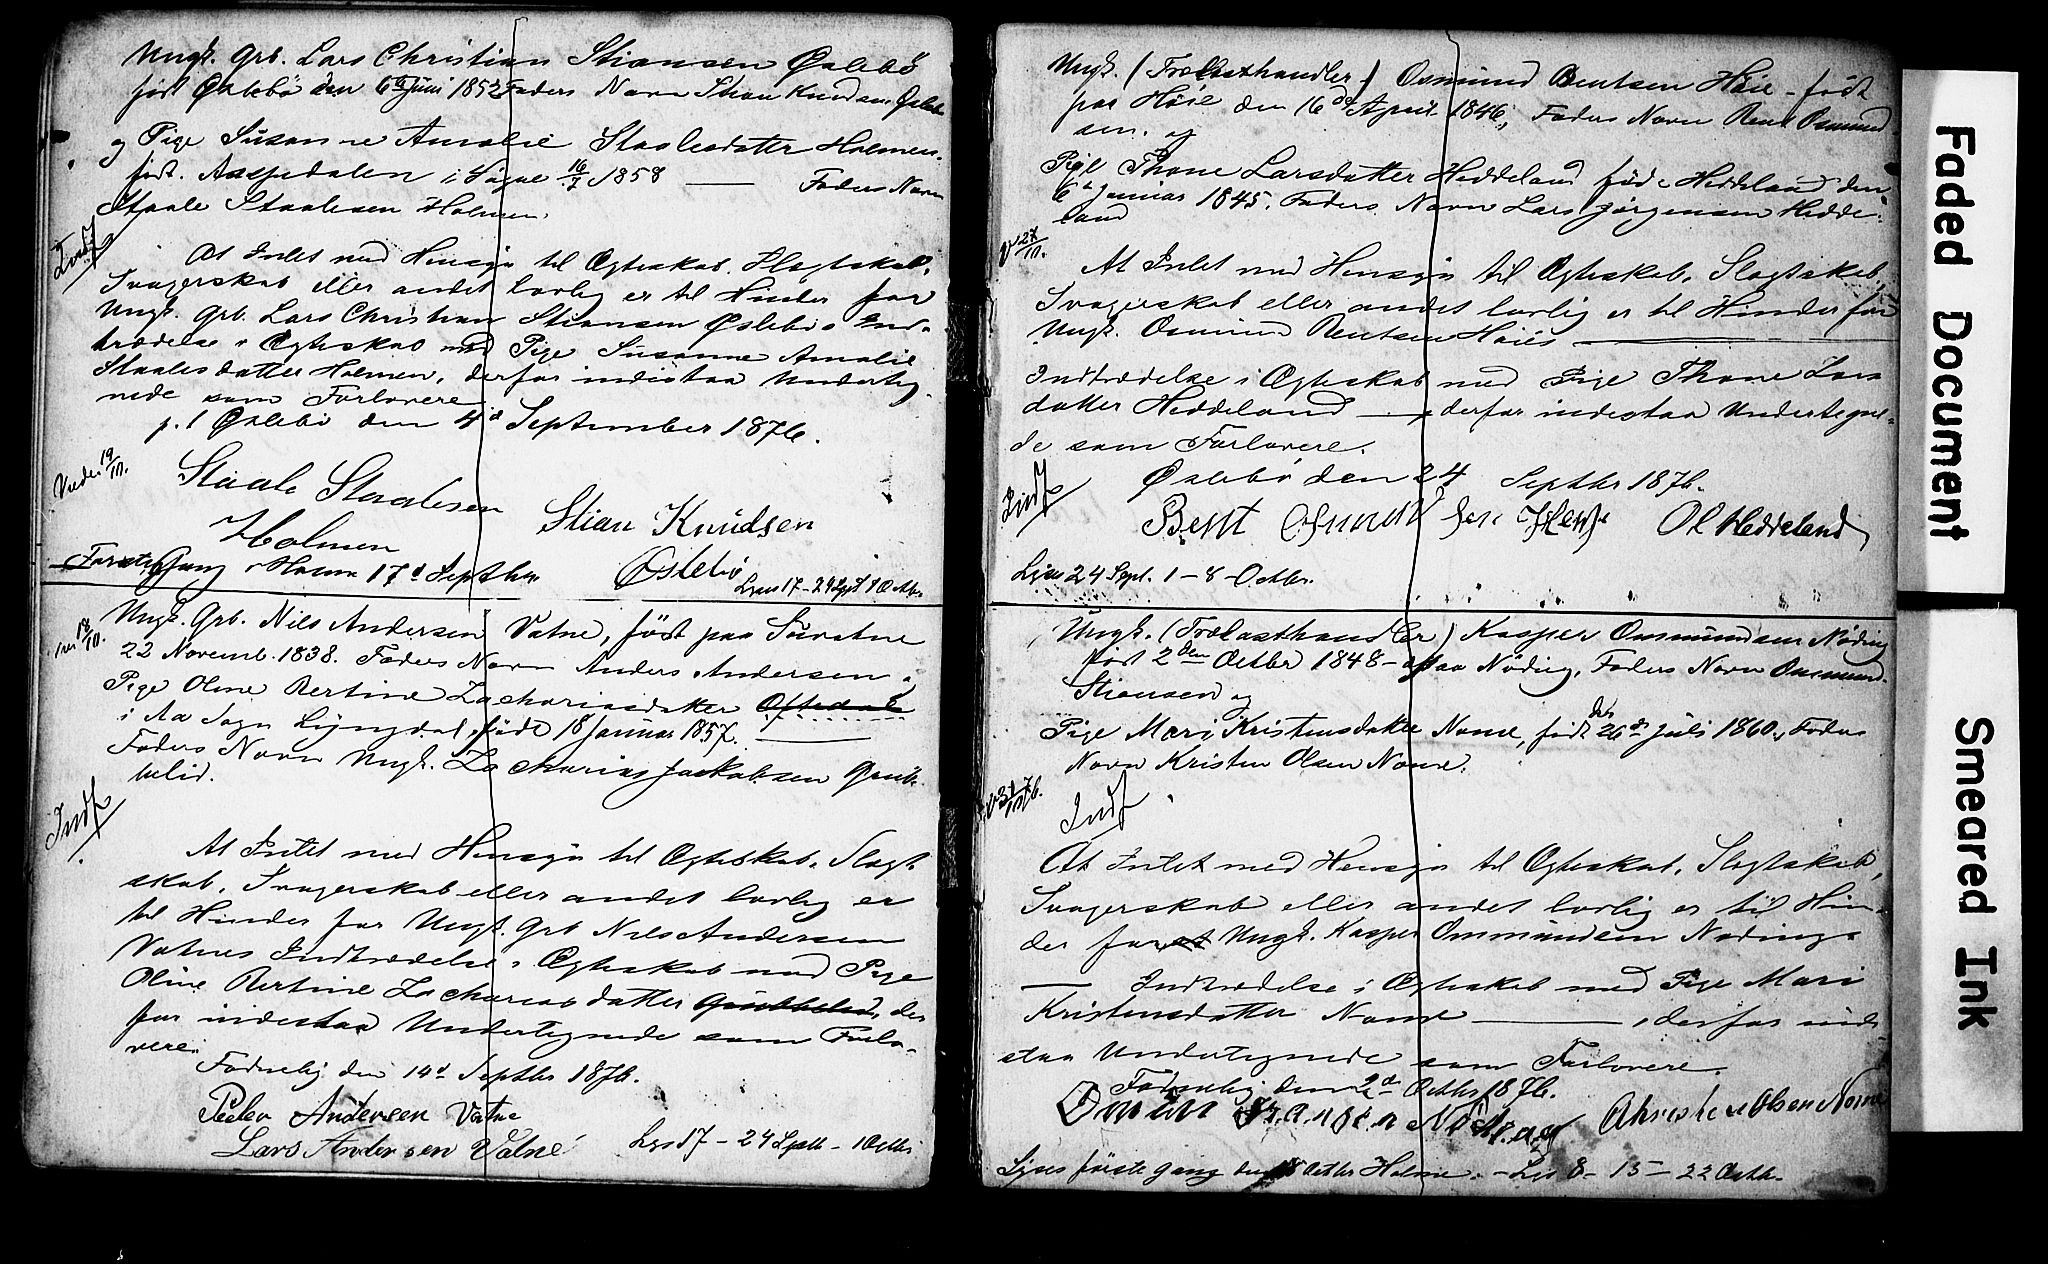 Ungk. Grb. Lars Christian Stiansen Øslebö
født Øslebö den 6te Juni 1852 Faders Navn Stian Knudsen Øslebö
og Pige Susanne Amalie Staalesdatter Holmen.
født. Aaspedalen i Søgne 16/7 1858 — Faders Navn
Staale Staalesen Holmen.
Indf
At Intet med Hensyn til Ægteskab, Slægtskab,
Svogerskab eller andet lovlig er til Hinder for
Ungk. Grb. Lars Christian Stiansen Øslebö's Ind-
trædelse i Ægteskab med Pige Susanne Amalie
Staalesdatter Holmen, derfor indestaa Underteg-
nede som Forlovere
p.t Øslebö den 4d September 1876.
Viede 19/10.
Staale Staalesen
Holmen
Stian Knudsen
Øslebö
Første Gang i Holme 17d Septbr
Lyses 17 - 24 Sept 1 Octbr
Ungk. Grb. Nils Andersen Vatne, født paa Suvatne
18/10.
22 Novemb. 1838. Faders Navn Anders Andersen
Pige Oline Bertine Zachariasdatter Oftedal
i Aa Sogn Lyngdal, født 18 Januar 1857. —
Faders Navn Ungk. Zacharias Jaakobsen Grub-
belid.
Indf
At Intet med Hensyn til Ægteskab, Slægt-
skab, Svogerskab eller andet lovlig er
til Hinder for Ungk. Grb Nils Andersen
Vatnes Indtrædelse i Ægteskab med Pige
Oline Bertine Zachariasdatter Grubbelid, der-
for indestaa Undertegnede som Forlo-
vere.
Fodnebig den 14d Septbr 1876.
Peder Andersen Vatne
Lars Andersen Vatne
Lyses 17 - 24 Septb - 1 Octbr
Ungk. (Trælasthandler) Osmund Bentsen Høie - født
paa Höie den 16de April 1846, Faders Navn Bent Osmund-
sen. og
Pige Thone Larsdatter Heddeland født Heddeland den
6te Januar 1845. Faders Navn Lars Jørgensen Hedde-
land
V 27/10.
At Intet med Hensyn til Ægteskab, Slægtskab,
Svogerskab eller andet lovlig er til Hinder for
Ungk. Osmund Bentsen Höies —
Indtrædelse i Ægteskab med Pige Thone Lars
datter Heddeland —, derfor indestaa Undertegne-
de som Forlovere.
Øslebö den 24 Septbr 1876.
Indf
Bent Osmundsen Høye Ol Heddeland
Lyses 24 Sept. 1 - 8 - Octbr.
Ungk. (Trælasthandler) Kasper Ommundsen Nöding
født 2den Octbr 1848 - paa Nöding, Faders Navn Ommund
Stiansen og
Pige Mari Kristensdatter Nome, født den 26de Juli 1860, Faders
Navn Kristen Olsen Nome.
Indf
At Intet med Hensyn til Ægteskab, Slægtskab,
Svogerskab eller andet lovlig er til Hin-
der for at Ungk. Kasper Ommundsen Nödings
— Indtrædelse i Ægteskab med Pige Mari
Kristensdatter Nome —, derfor inde-
staa Undertegnede som Forlovere.
Fodnebig den 2de Octbr 1876.
Omun Stansen Nöding Christen Olsen Nome
Lyses første gang den 8 Octbr Holme. - Lys 8 - 15 - 22 Octb.
Faded Document
Smeared Ink